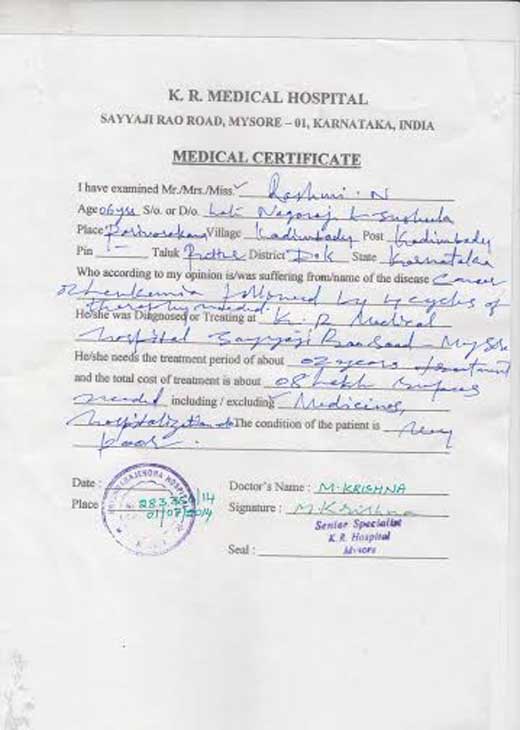 K. R. MEDICAL HOSPITAL
SAYYAJI RAO ROAD, MYSORE – 01, KARNATAKA, INDIA
MEDICAL CERTIFICATE
I have examined Mr./Mrs./Miss. Rashmi. N
Age 06yrs S/o. or D/o. Late Nagaraj L Susheela
Place Village Kadimbady Post Kadimbady
Pin — Taluk District D.K State Karnataka
Who according to my opinion is/was suffering from/name of the disease Cancer
followed by 4 cycles of
therophy needed.
He/she was Diagnosed or Treating at K. R Medical
hospital Sayyaji Rao Road – Mysore
He/she needs the treatment period of about 02 years treatment
and the total cost of treatment is about 08 lakh rupees
needed including / excluding Medicines,
hospitalization The condition of the patient is very
poor.
Date :
Place
01/07/2014
Doctor's Name : M. KRISHNA
Signature : M Krishna
Senior Specialist
K. R. Hospital
Mysore
Seal :